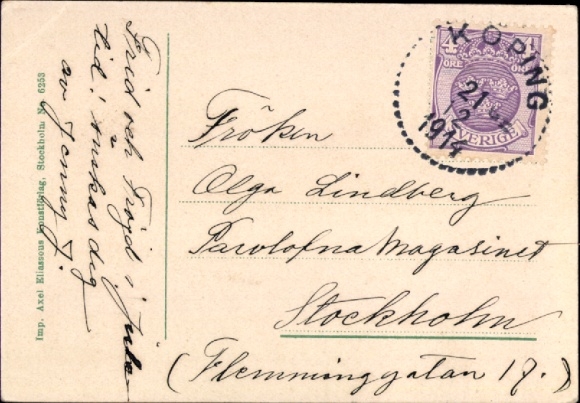 Frid och Fröjd i Jule
tid! önskas dig
av Jenny J.
Imp. Axel Eliassons Konstförlag, Stockholm No 6253
4 4
ÖRE ÖRE
SVERIGE
KÖPING
21 12
1914
Fröken
Olga Lindberg
Parolofna Magasinet
Stockholm
(Flemminggatan 17.)